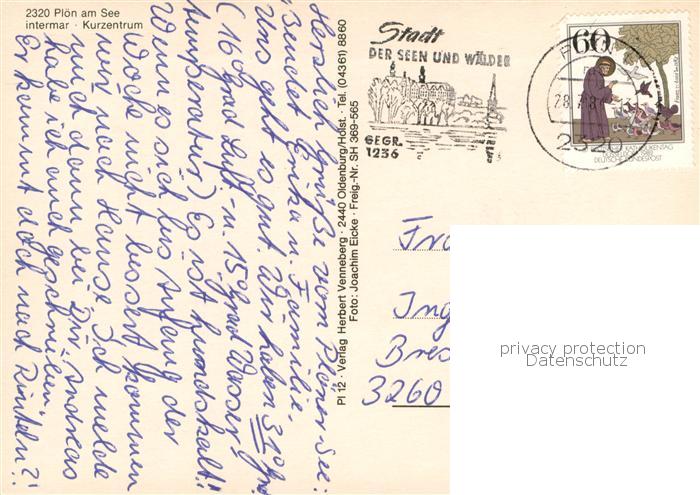 2320 Plön am See
intermar · Kurzentrum
Herzlichen Grüße vom Plöner See
Sendet Erika u. Familie.
Uns geht es gut. Wir haben 31 Grad
(16 grad Luft - u. 15 grad Wasser
temperatur) Es ist hundekalt!!
Wenn es sich bis Anfang der
Woche nicht bessert kommen
wir nach Hause. Ich melde
mich dann bei Dir. Andreas
habe ich auch geschrieben.
Er kommt doch nach Rinteln?!
Pl 12 · Verlag Herbert Venneberg · 2440 Oldenburg/Holst. · Tel. (04361) 8860
Foto: Joachim Eicke · Freig.-Nr. SH 369-565
Stadt
DER SEEN UND WÄLDER
GEGR.
1236
2320
60
DEUTSCHE BUNDESPOST
Fra
Ing
Bres
3260
privacy protection
Datenschutz